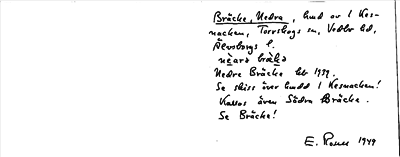 Bräcke, Nedra, hmd av 1 Kes-
nacken, Torrskogs sn, Vedbo hd,
Älvsborgs l.
Nedre Bräcke bb 1939.
Se skiss över hmdd 1 Kesnacken!
Kallas även Södra Bräcke.
Se Bräcke!
E. 1949